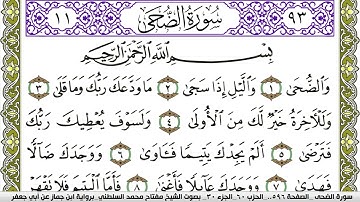 ٩٣ سُورَةُ الضُّحَى ١١
بِسْمِ اللَّهِ الرَّحْمَٰنِ الرَّحِيمِ
وَالضُّحَى ١ وَالَّيْلِ إِذَا سَجَى ٢ مَا وَدَّعَكَ رَبُّكَ وَمَا قَلَى ٣
وَلَلْآخِرَةُ خَيْرٌ لَّكَ مِنَ الْأُولَى ٤ وَلَسَوْفَ يُعْطِيكَ رَبُّكَ
فَتَرْضَى ٥ أَلَمْ يَجِدْكَ يَتِيمًا فَـَٔاوَى ٦ وَوَجَدَكَ ضَآلًّا
فَهَدَى ٧ وَوَجَدَكَ عَآئِلًا فَأَغْنَى ٨ فَأَمَّا الْيَتِيمَ فَلَا تَقْهَرْ
سورة الضحى .. الصفحة ٥٩٦ .. الحزب ٦٠ الجزء ٣٠ .. بصوت الشيخ مفتاح محمد السلطني .. برواية ابن جماز عن أبي جعفر